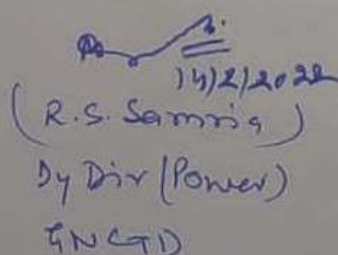 14/2/2022
(R.S. Samria)
Dy Dir (Power)
GNCTD